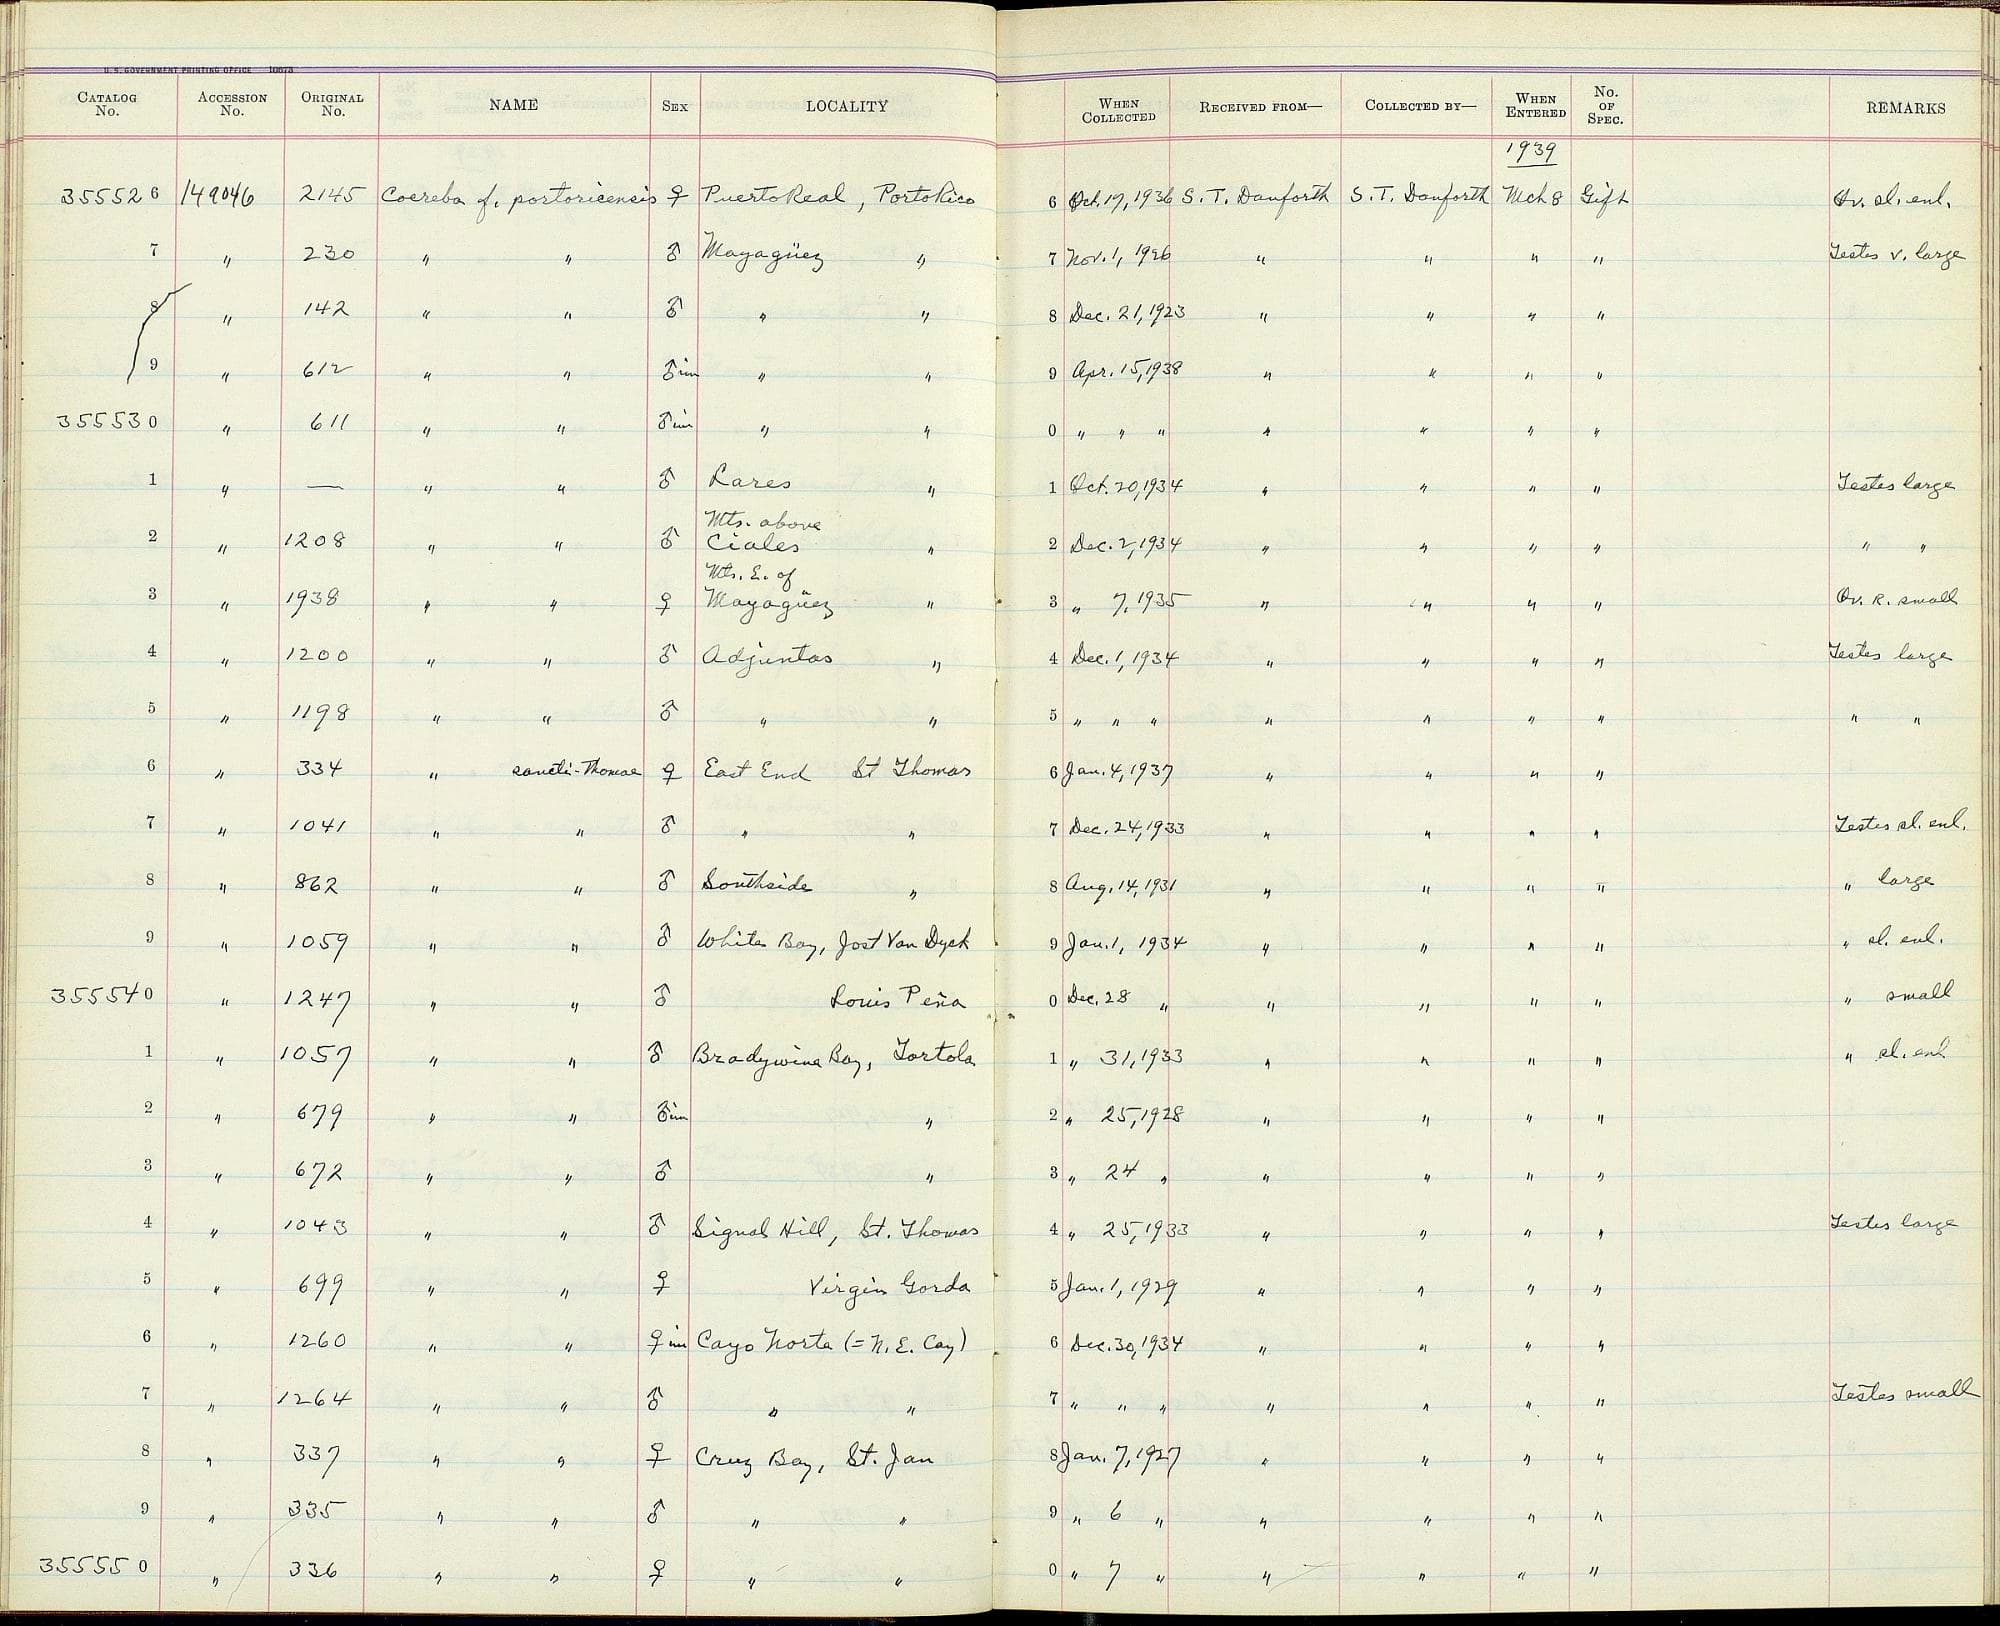 U. S. GOVERNMENT PRINTING OFFICE
CATALOG No. ACCESSION No. ORIGINAL No. NAME SEX LOCALITY WHEN COLLECTED RECEIVED FROM— COLLECTED BY— WHEN ENTERED No. OF SPEC. REMARKS
1939
355526 149046 2145 Coereba f. portoricensis ♀ Puerto Real, Porto Rico 6 Oct. 19, 1936 S. T. Danforth S. T. Danforth Mch 8 Gift Ov. sl. enl.
7 " 230 " " ♂ Mayagüez " 7 Nov. 1, 1926 " " " " Testes v. large
8 " 142 " " ♂ " " 8 Dec. 21, 1923 " " " "
9 " 612 " " ♂ im " " 9 Apr. 15, 1938 " " " "
355530 " 611 " " ♂ im " " 0 " " " " " " "
1 " — " " ♂ Lares " 1 Oct. 20, 1934 " " " " Testes large
Mts. above
2 " 1208 " " ♂ Ciales " 2 Dec. 2, 1934 " " " " " "
Mts. E. of
3 " 1938 " " ♀ Mayagüez " 3 " 7, 1935 " " " " Ov. R. small
4 " 1200 " " ♂ Adjuntas " 4 Dec. 1, 1934 " " " " Testes large
5 " 1198 " " ♂ " " 5 " " " " " " " " "
6 " 334 " sancti-Thomae ♀ East End St Thomas 6 Jan. 4, 1937 " " " "
7 " 1041 " " ♂ " " 7 Dec. 24, 1933 " " " " Testes sl. enl.
8 " 862 " " ♂ Southside " 8 Aug. 14, 1931 " " " " " large
9 " 1059 " " ♂ White Bay, Jost Van Dyck 9 Jan. 1, 1934 " " " " " sl. enl.
355540 " 1247 " " ♂ Louis Peña 0 Dec. 28 " " " " " " small
1 " 1057 " " ♂ Bradywine Bay, Tortola 1 " 31, 1933 " " " " " sl. enl
2 " 679 " " ♂ im " 2 " 25, 1928 " " " "
3 " 672 " " ♂ " 3 " 24 " " " " "
4 " 1043 " " ♂ Signal Hill, St. Thomas 4 " 25, 1933 " " " " Testes large
5 " 699 " " ♀ Virgin Gorda 5 Jan. 1, 1929 " " " "
6 " 1260 " " ♀ im Cayo Norte (= N. E. Cay) 6 Dec. 30, 1934 " " " "
7 " 1264 " " ♂ " " 7 " " " " " " " Testes small
8 " 337 " " ♀ Cruz Bay, St. Jan 8 Jan. 7, 1927 " " " "
9 " 335 " " ♂ " " 9 " 6 " " " " "
355550 " 336 " " ♀ " " 0 " 7 " " " " "